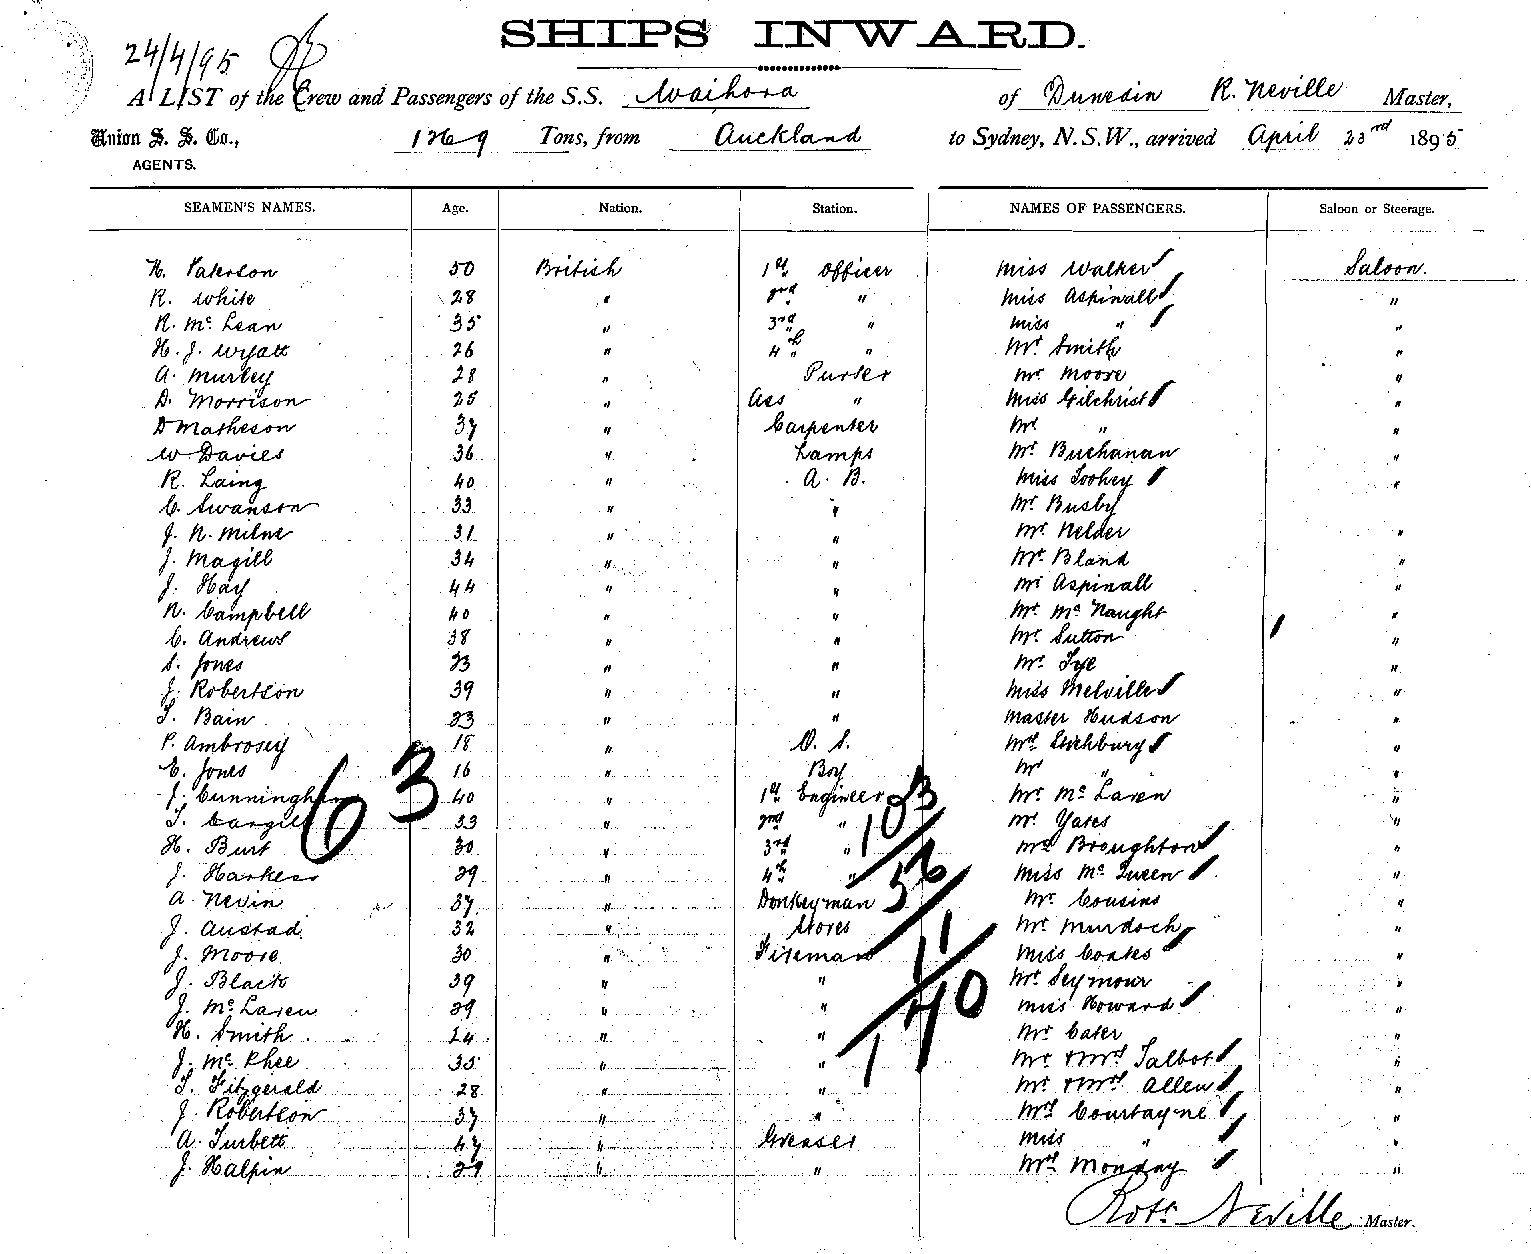 SHIPS INWARD.
24/4/95
A LIST of the Crew and Passengers of the S.S. Waihora of Dunedin R. Neville Master,
Union S. S. Co., 1269 Tons, from Auckland to Sydney, N.S.W., arrived April 23rd 1895
AGENTS.
SEAMEN'S NAMES. Age. Nation. Station. NAMES OF PASSENGERS. Saloon or Steerage.
H. Paterson 50 British 1st Officer Miss Walker Saloon.
R. White 28 " 2nd " Miss Aspinall "
R. McLean 35 " 3rd " Miss " "
H. J. Wyatt 26 " 4th " Mr Smith "
A. Murley 28 " Purser Mr Moore "
D. Morrison 25 " Ass " Miss Gilchrist "
D Matheson 37 " Carpenter Mr " "
W Davies 36 " Lamps Mr Buchanan "
R. Laing 40 " A. B. Miss Toohey "
C. Swanson 33 " " Mr Busby
J. R. Milne 31 " " Mr Nelder "
J. Magill 34 " " Mr Bland "
J. Hay 44 " " Mr Aspinall "
N. Campbell 40 " " Mr McNaught "
C. Andrews 38 " " Mr Sutton "
S. Jones 23 " " Mr Tye "
J. Robertson 39 " " Miss Melville "
T. Bain 23 " " Master Hudson "
P. Ambrosey 18 " O. S. Mrs Stichbury "
E. Jones 16 " Boy Mr " "
J. Cunningham 40 " 1st Engineer Mr McLaren "
T. Cargill 33 " 2nd " Mr Yates "
H. Burt 30 " 3rd " Mrs Broughton "
J. Harkess 29 " 4th " Miss McQueen "
A. Nevin 37 " Donkeyman Mr Cousins "
J. Austad 32 " Stores Mr Murdoch "
J. Moore 30 " Fireman Miss Coates "
J. Black 39 " " Mr Seymour "
J. McLaren 29 " " Miss Howard "
H. Smith 24 " " Mr Cater "
J. McPhee 35 " " Mr & Mrs Talbot "
T. Fitzgerald 28 " " Mr & Mrs Allen "
J. Robertson 37 " " Mrs Courtayne "
A. Turbett 47 " Greaser Miss " "
J. Halpin 29 " " Mrs Monday "
63
103
56
11
40
1
Robt Neville Master.